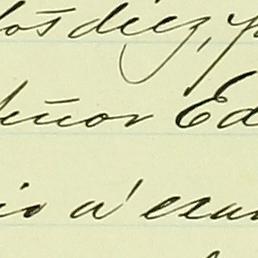 los diez, y
eñor Ed
io á exa